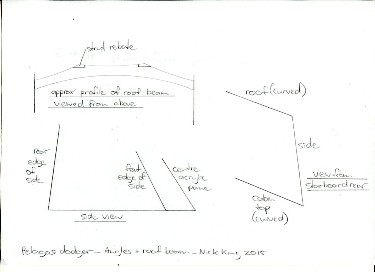 strut rebate
approx profile of roof beam
viewed from above
roof (curved)
side
view from
starboard rear
cabin
top
(curved)
rear
edge
of
side
front
edge of
side
centre
acrylic
pane
side view
Pelagos dodger - Angles + roof beam - Nick King, 2015